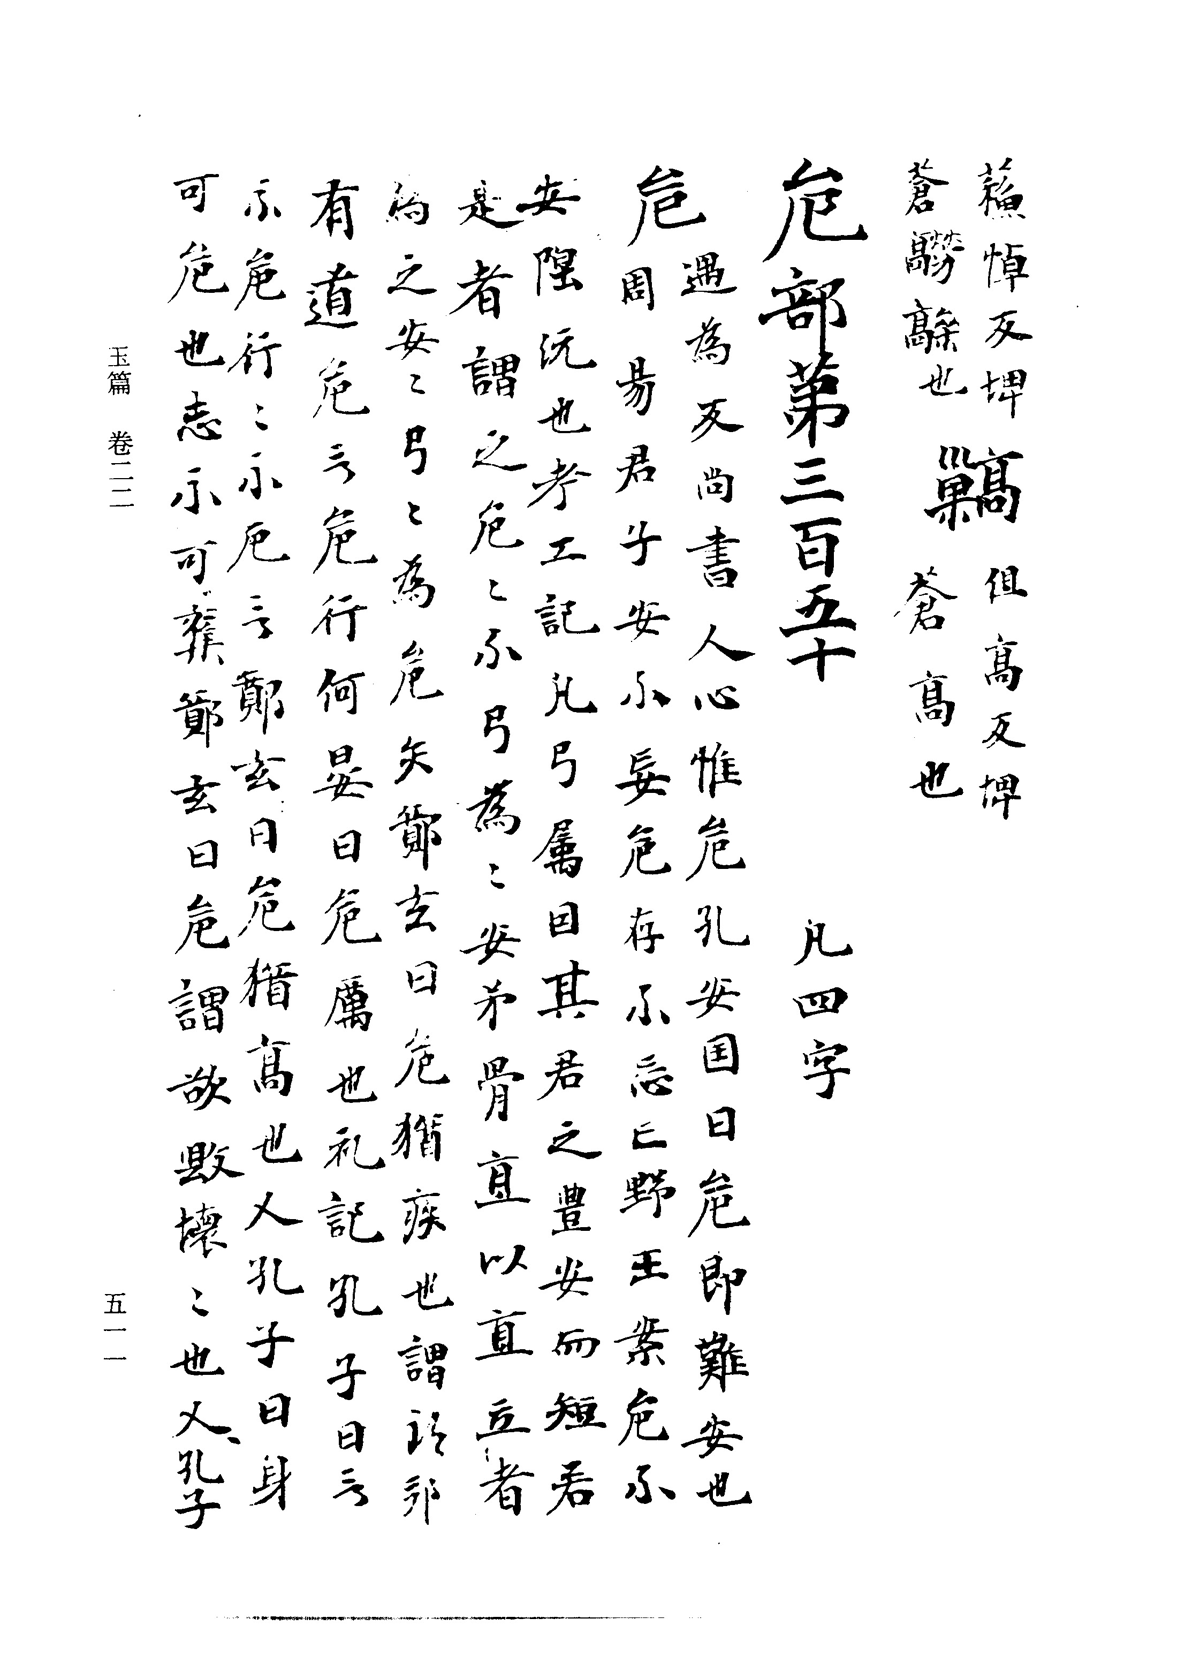 蘓悼反埤
蒼
也
但髙反埤
蒼髙也
危部第三百五十 凡四字
危
遇為反尚書人心惟危孔安国曰危即難安也
周易君子安不妄危存不忘亡野王案危不
安隉阢也考工記凡弓属因其君之豊安而短若
是者謂之危〻不弓為〻安弟骨直以直立者
為之安〻弓〻為危矢鄭玄曰危猶疾也
有道危言危行何晏曰危厲也礼記孔子曰言
不危行〻不危言鄭玄曰危猶髙也又孔子曰身
可危也志不可 鄭玄曰危謂欲毀壊〻也又孔子
玉篇 卷二二
五一一